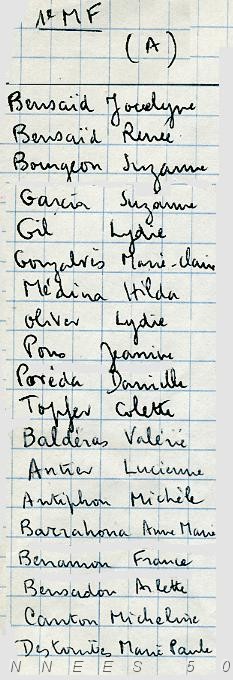 1e MF
(A)
Bensaïd Jocelyne
Bensaïd Renée
Bourgeon Suzanne
Garcia Suzanne
Gil Lydie
Gonzalvès Marie-Claire
Médina Hilda
Oliver Lydie
Pons Jeannine
Poréda Danielle
Topfer Colette
Baldéras Valérie
Antier Lucienne
Antiphon Michèle
Barrahona Anne Marie
Benamon France
Bensadon Arlette
Canton Micheline
Marie Paule
NNEES 50